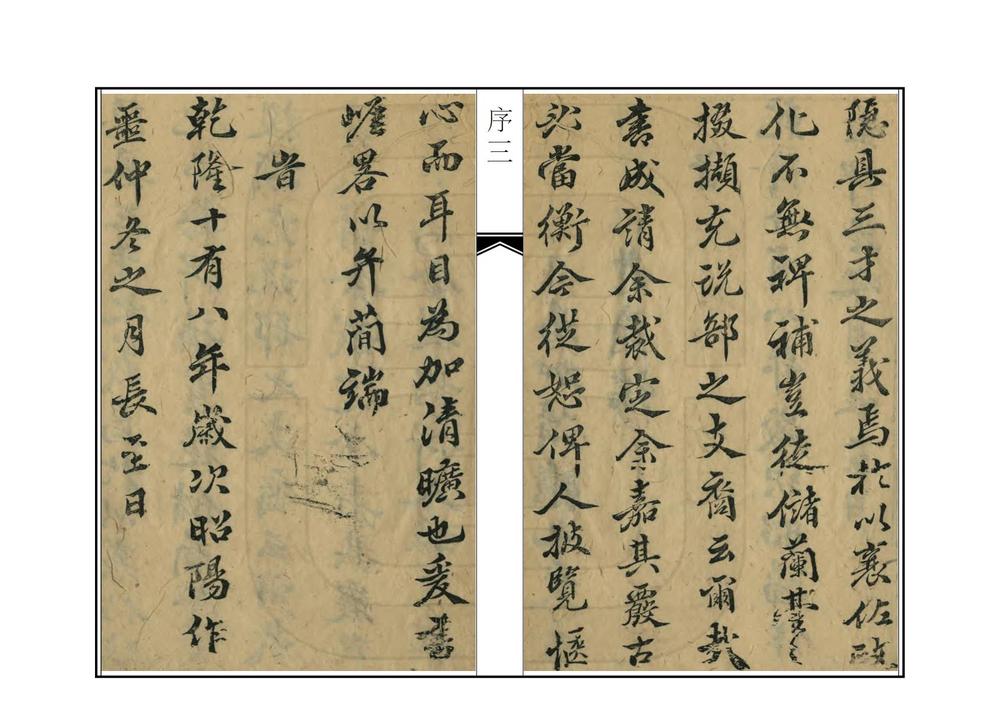 隱具三才之義焉於以襄佐政
化不無裨補豈徒儲蘭
掇擷充說部之支裔云爾哉
書成請余裁定余嘉其嚴古
必當衡今從恕俾人披覽愜
序三
心而耳目為加清曠也爰書
崕畧以弁簡端
旹
乾隆十有八年歲次昭陽作
噩仲冬之月長至日